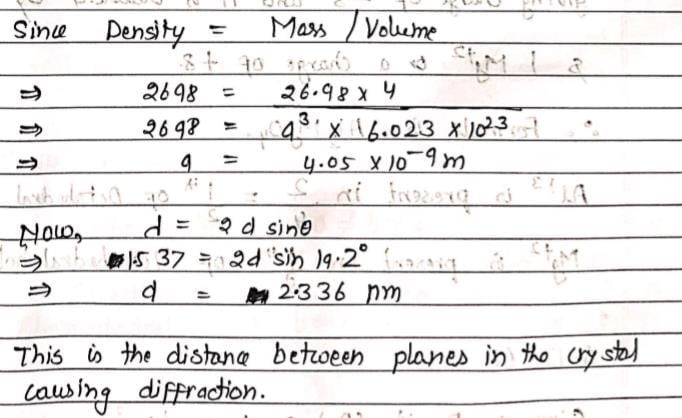 Since Density = Mass / Volume
⇒ 2698 = 26.98 x 4
⇒ 2698 = a³ x 6.023 x 10²³
⇒ a = 4.05 x 10⁻⁹ m
Now, d = 2 d sinθ
⇒ 15 37 = 2d sin 19.2°
⇒ d = 2.336 nm
This is the distance between planes in the crystal
causing diffraction.